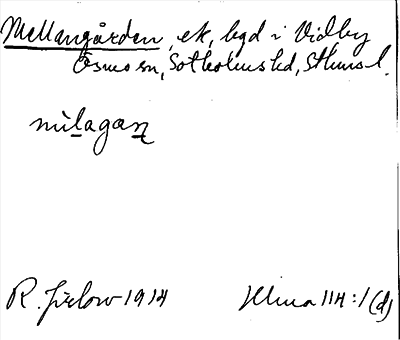 Mellangården, ek, bgd i Vidby
Ösmo sn, Sotholms hd, Sthms l.
mìlagaṉ
R. Jirlow 1914